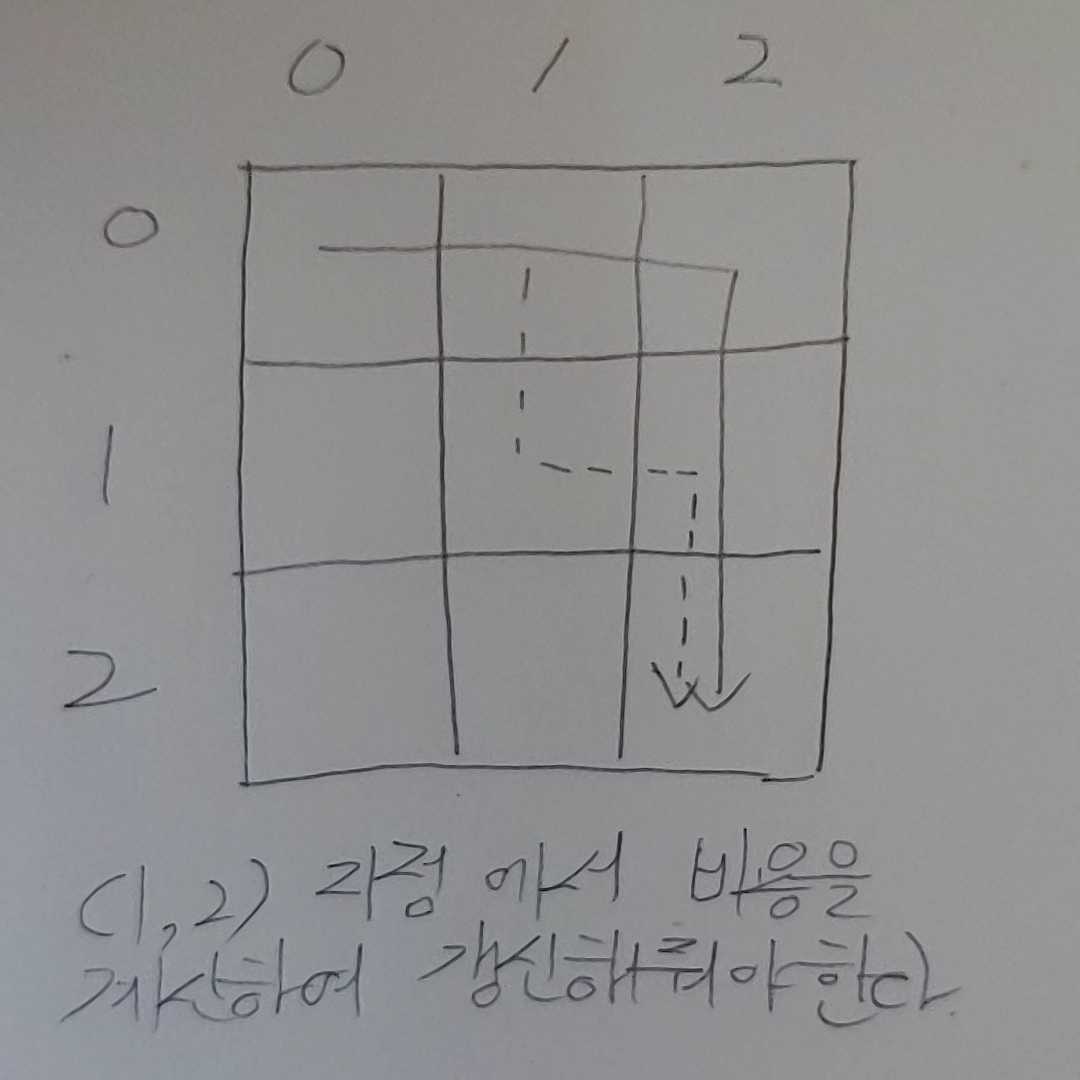 0 1 2
0
1
2
(1,2) 지점에서 비용을
계산하여 갱신해줘야한다.